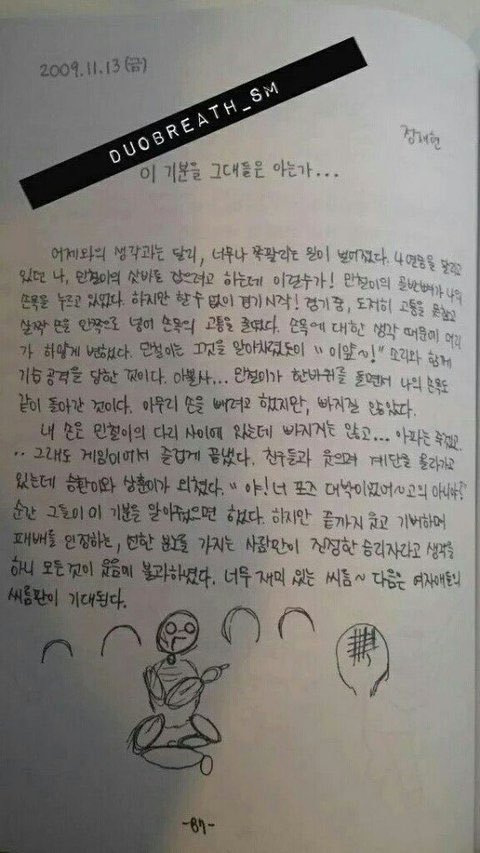 2009.11.13(금)
DUOBREATH_SM
장재현
이 기분을 그대들은 아는가...
어제와의 생각과는 달리, 너무나 쪽팔리는 일이 벌어졌다. 4연승을 달리고
있던 나, 민철이의 샅바를 잡으려고 하는데 이럴수가! 민철이의 골반뼈가 나의
손목을 누르고 있었다. 하지만 할 수 없이 경기시작! 경기 중, 도저히 고통을 못참고
살짝 손을 안쪽으로 넣어 손목의 고통을 줄였다. 손목에 대한 생각 때문에 머리
가 하얗게 변했다. 민철이는 그것을 알아차렸듯이 "이얖~!" 소리와 함께
기습공격을 당한 것이다. 아불사... 민철이가 한바퀴를 돌면서 나의 손목도
같이 돌아간 것이다. 아무리 손을 빼려고 했지만, 빠지질 않았다.
내 손은 민철이의 다리 사이에 있는데 빠지지는 않고... 아파는 죽겠고.
.. 그래도 게임이어서 즐겁게 끝냈다. 친구들과 웃으며 계단을 올라가고
있는데 승환이와 상훈이가 외쳤다. "야! 너 포즈 대박이었어~ 고의 아니냐?"
순간 그들이 이 기분을 알아줬으면 했다. 하지만 끝까지 웃고 기버하며
패배를 인정하는, 변한 가지는 사람만이 진정한 승리자라고 생각을
하니 모든것이 웃음에 불과하였다. 너무 재미 있는 씨름~ 다음은 여자애들의
씨름판이 기대된다.
-87-